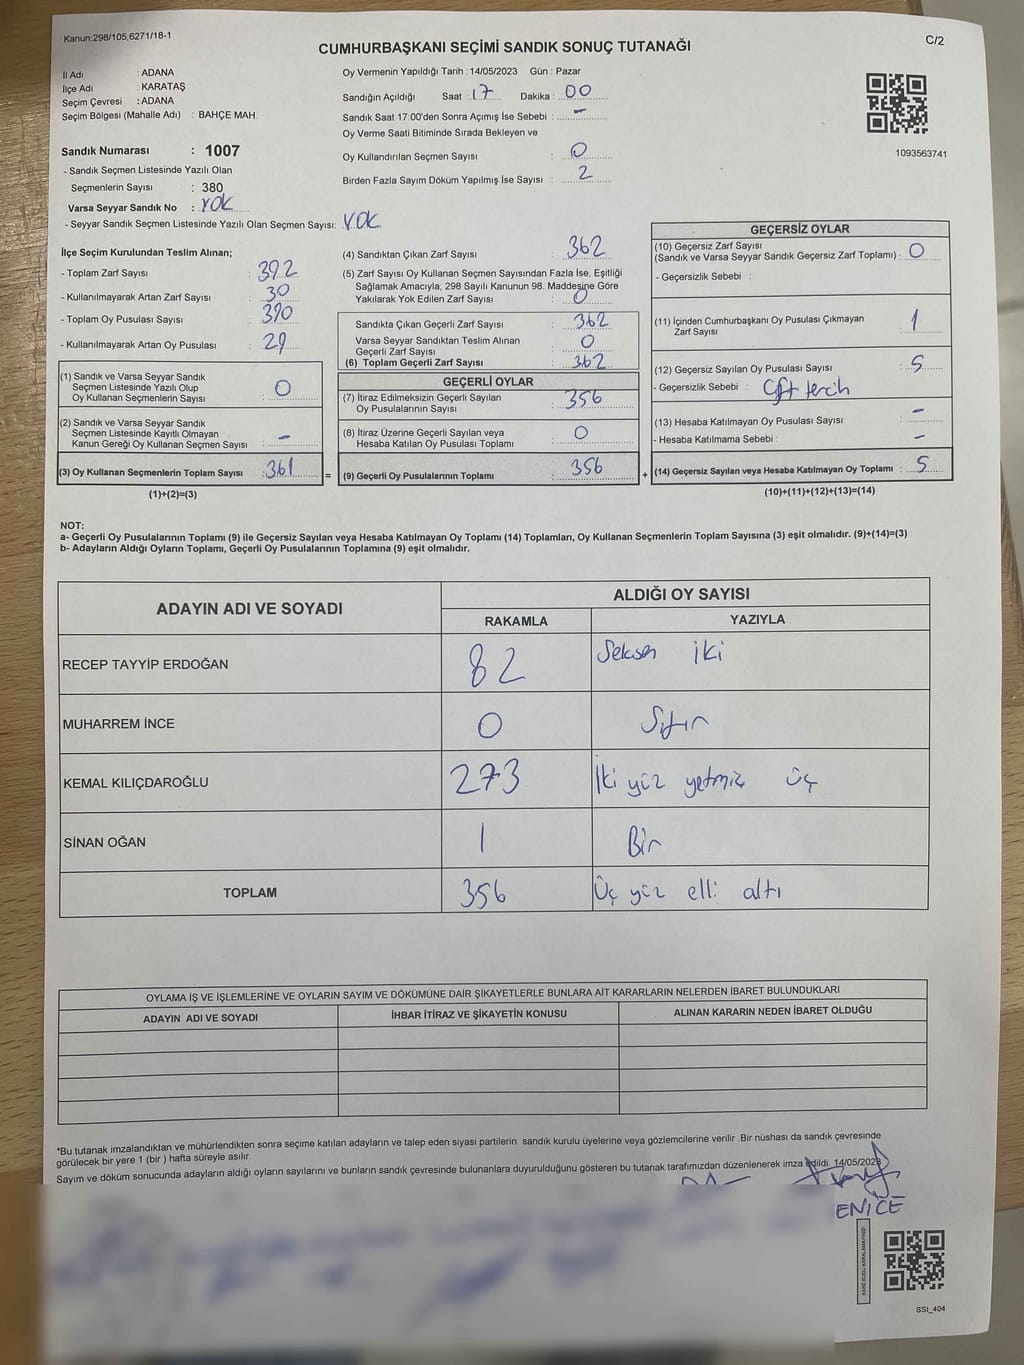 Kanun;298/105,6271/18-1
C/2
CUMHURBAŞKANI SEÇİMİ SANDIK SONUÇ TUTANAĞI
İl Adı : ADANA
İlçe Adı : KARATAŞ
Seçim Çevresi : ADANA
Seçim Bölgesi (Mahalle Adı) : BAHÇE MAH.
Sandık Numarası : 1007
- Sandık Seçmen Listesinde Yazılı Olan
Seçmenlerin Sayısı : 380
Varsa Seyyar Sandık No : YOK
- Seyyar Sandık Seçmen Listesinde Yazılı Olan Seçmen Sayısı: YOK
Oy Vermenin Yapıldığı Tarih : 14/05/2023 Gün : Pazar
Sandığın Açıldığı Saat : 17 Dakika : 00
Sandık Saat 17:00'den Sonra Açımış İse Sebebi : -
Oy Verme Saati Bitiminde Sırada Bekleyen ve
Oy Kullandırılan Seçmen Sayısı : 0
Birden Fazla Sayım Döküm Yapılmış İse Sayısı : 2
1093563741
İlçe Seçim Kurulundan Teslim Alınan;
- Toplam Zarf Sayısı : 392
- Kullanılmayarak Artan Zarf Sayısı : 30
- Toplam Oy Pusulası Sayısı : 390
- Kullanılmayarak Artan Oy Pusulası : 29
(1) Sandık ve Varsa Seyyar Sandık
Seçmen Listesinde Yazılı Olup
Oy Kullanan Seçmenlerin Sayısı : 0
(2) Sandık ve Varsa Seyyar Sandık
Seçmen Listesinde Kayıtlı Olmayan
Kanun Gereği Oy Kullanan Seçmen Sayısı : -
(3) Oy Kullanan Seçmenlerin Toplam Sayısı : 361 =
(1)+(2)=(3)
(4) Sandıktan Çıkan Zarf Sayısı : 362
(5) Zarf Sayısı Oy Kullanan Seçmen Sayısından Fazla İse, Eşitliği
Sağlamak Amacıyla; 298 Sayılı Kanunun 98. Maddesine Göre
Yakılarak Yok Edilen Zarf Sayısı : 0
Sandıkta Çıkan Geçerli Zarf Sayısı : 362
Varsa Seyyar Sandıktan Teslim Alınan
Geçerli Zarf Sayısı : 0
(6) Toplam Geçerli Zarf Sayısı : 362
GEÇERLİ OYLAR
(7) İtiraz Edilmeksizin Geçerli Sayılan
Oy Pusulalarının Sayısı : 356
(8) İtiraz Üzerine Geçerli Sayılan veya
Hesaba Katılan Oy Pusulası Toplamı : 0
(9) Geçerli Oy Pusulalarının Toplamı : 356 +
GEÇERSİZ OYLAR
(10) Geçersiz Zarf Sayısı
(Sandık ve Varsa Seyyar Sandık Geçersiz Zarf Toplamı) : 0
- Geçersizlik Sebebi :
(11) İçinden Cumhurbaşkanı Oy Pusulası Çıkmayan
Zarf Sayısı : 1
(12) Geçersiz Sayılan Oy Pusulası Sayısı : 5
- Geçersizlik Sebebi : Çift tercih
(13) Hesaba Katılmayan Oy Pusulası Sayısı : -
- Hesaba Katılmama Sebebi : -
(14) Geçersiz Sayılan veya Hesaba Katılmayan Oy Toplamı : 5
(10)+(11)+(12)+(13)=(14)
NOT:
a- Geçerli Oy Pusulalarının Toplamı (9) ile Geçersiz Sayılan veya Hesaba Katılmayan Oy Toplamı (14) Toplamları, Oy Kullanan Seçmenlerin Toplam Sayısına (3) eşit olmalıdır. (9)+(14)=(3)
b- Adayların Aldığı Oyların Toplamı, Geçerli Oy Pusulalarının Toplamına (9) eşit olmalıdır.
ADAYIN ADI VE SOYADI
ALDIĞI OY SAYISI
RAKAMLA YAZIYLA
RECEP TAYYİP ERDOĞAN 82 Seksen iki
MUHARREM İNCE 0 Sıfır
KEMAL KILIÇDAROĞLU 273 İki yüz yetmiş üç
SİNAN OĞAN 1 Bir
TOPLAM 356 Üç yüz elli altı
OYLAMA İŞ VE İŞLEMLERİNE VE OYLARIN SAYIM VE DÖKÜMÜNE DAİR ŞİKAYETLERLE BUNLARA AİT KARARLARIN NELERDEN İBARET BULUNDUKLARI
ADAYIN ADI VE SOYADI İHBAR İTİRAZ VE ŞİKAYETİN KONUSU ALINAN KARARIN NEDEN İBARET OLDUĞU
*Bu tutanak imzalandıktan ve mühürlendikten sonra seçime katılan adayların ve talep eden siyasi partilerin sandık kurulu üyelerine veya gözlemcilerine verilir .Bir nüshası da sandık çevresinde
görülecek bir yere 1 (bir ) hafta süreyle asılır.
Sayım ve döküm sonucunda adayların aldığı oyların sayılarını ve bunların sandık çevresinde bulunanlara duyurulduğunu gösteren bu tutanak tarafımızdan düzenlenerek imza edildi. 14/05/2023
ENİCE
SSİ_404